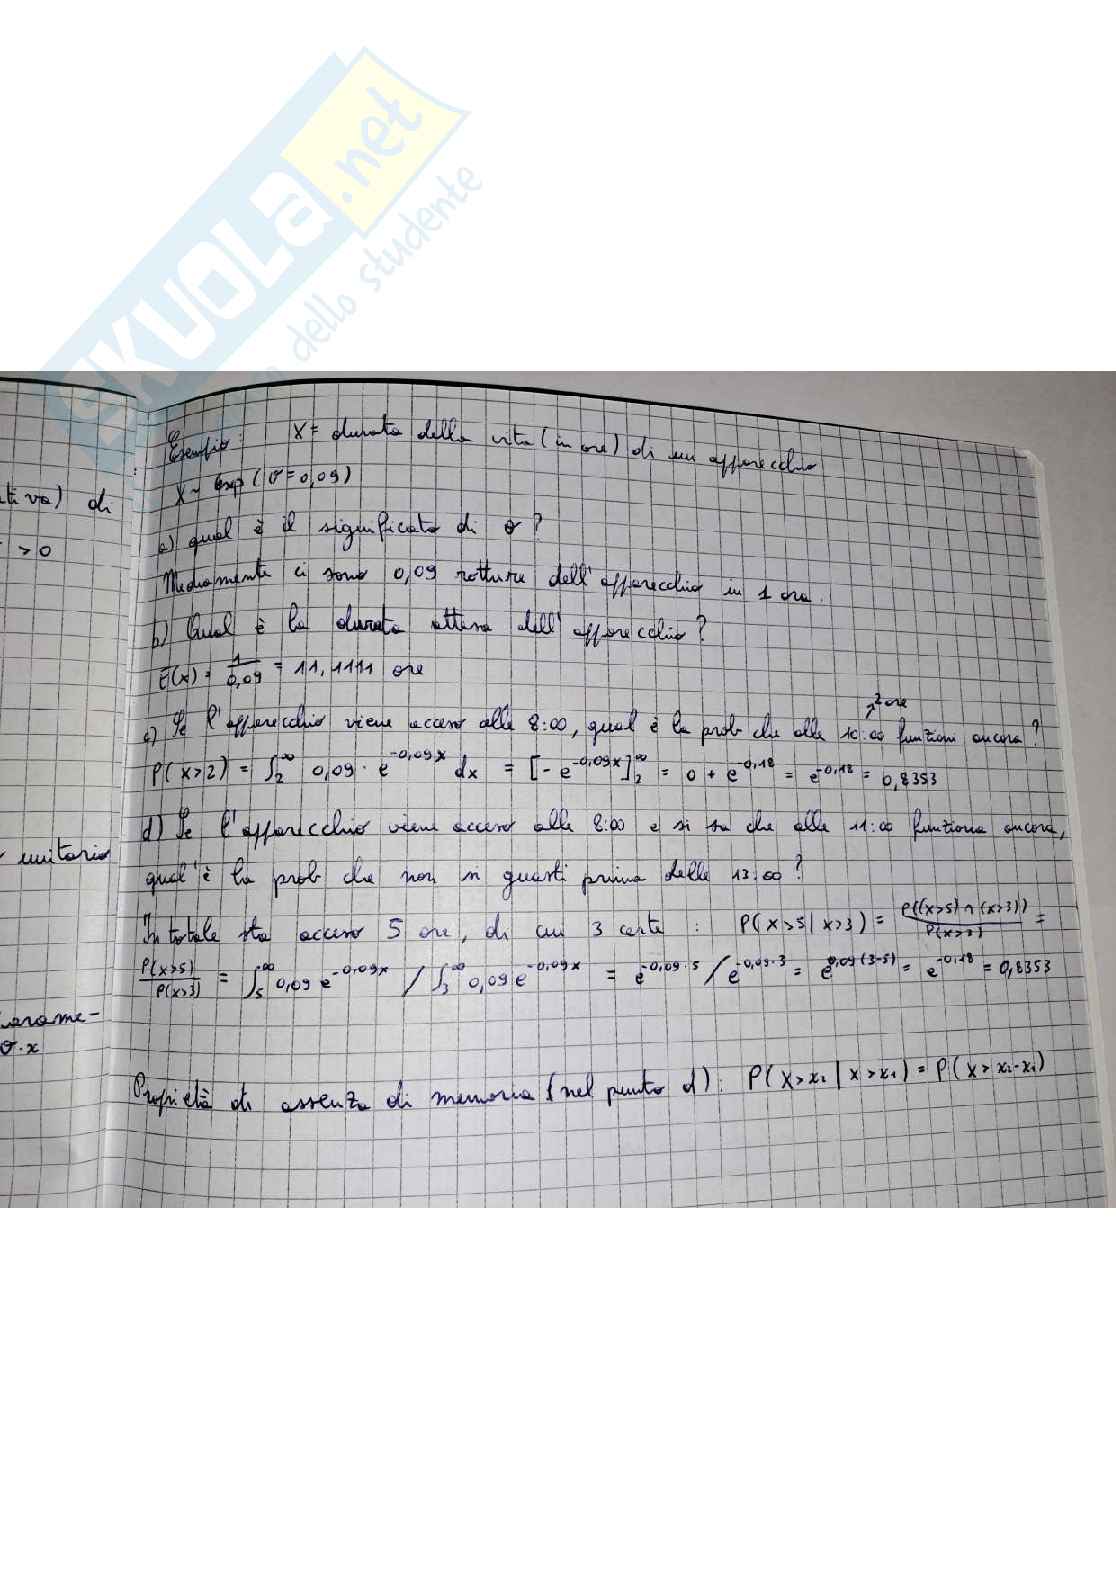 SKUOLA.net
dello studente
Esempio: X = durata della vita (in ore) di un apparecchio
X ~ Exp (θ = 0,09)
a) qual è il significato di θ?
Mediamente ci sono 0,09 rotture dell'apparecchio in 1 ora.
b) Qual è la durata attesa dell'apparecchio?
E(x) = 1/0,09 = 11,1111 ore
↗ 2 ore
c) Se l'apparecchio viene acceso alle 8:00, qual è la prob che alle 10:00 funzioni ancora?
P(X>2) = ∫₂^∞ 0,09 · e^-0,09x dx = [-e^-0,09x]₂^∞ = 0 + e^-0,18 = e^-0,18 = 0,8353
d) Se l'apparecchio viene acceso alle 8:00 e si sa che alle 11:00 funziona ancora,
qual'è la prob che non si guasti prima delle 13:00?
In totale sta acceso 5 ore, di cui 3 certe: P(X>5 | X>3) = P((X>5) ∩ (X>3)) / P(X>3) =
P(X>5) / P(X>3) = ∫₅^∞ 0,09 e^-0,09x / ∫₃^∞ 0,09 e^-0,09x = e^-0,09·5 / e^-0,09·3 = e^0,09(3-5) = e^-0,18 = 0,8353
Proprietà di assenza di memoria (nel punto d): P(X>x₂ | X>x₁) = P(X > x₂-x₁)
tiva) di
>0
unitario
parame-
θ·x